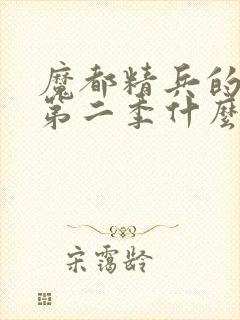 魔都精兵的
第二季什麼
宋靄龄